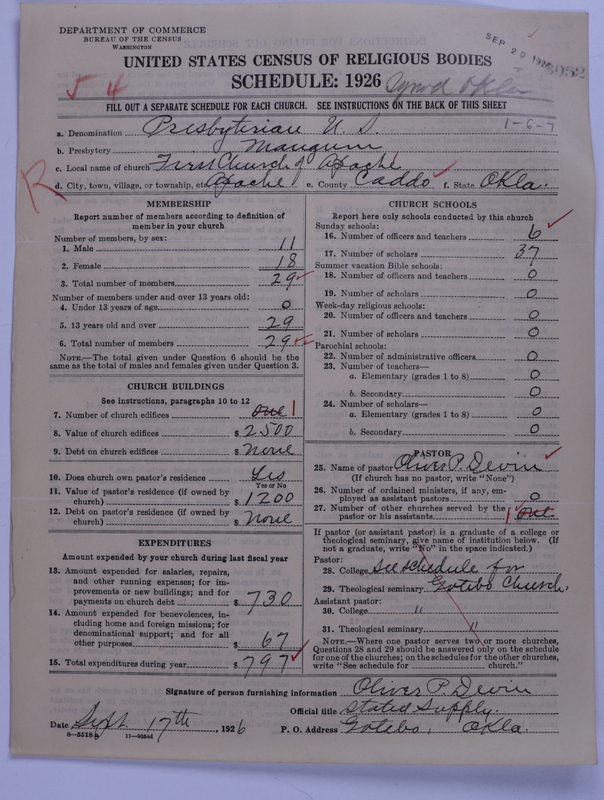 DEPARTMENT OF COMMERCE
BUREAU OF THE CENSUS
WASHINGTON
SEP 20 1926
UNITED STATES CENSUS OF RELIGIOUS BODIES
SCHEDULE: 1926
Synod Okla
5 4
FILL OUT A SEPARATE SCHEDULE FOR EACH CHURCH. SEE INSTRUCTIONS ON THE BACK OF THIS SHEET
a. Denomination Presbyterian U. S. 1-6-7
b. Presbytery Mangum
c. Local name of church First Church of Apache
R
d. City, town, village, or township, etc. Apache e. County Caddo f. State Okla.
MEMBERSHIP
Report number of members according to definition of member in your church
Number of members, by sex:
1. Male 11
2. Female 18
3. Total number of members 29
Number of members under and over 13 years old:
4. Under 13 years of age 0
5. 13 years old and over 29
6. Total number of members 29
NOTE.—The total given under Question 6 should be the same as the total of males and females given under Question 3.
CHURCH BUILDINGS
See instructions, paragraphs 10 to 12
7. Number of church edifices one 1
8. Value of church edifices $ 2500
9. Debt on church edifices $ None
10. Does church own pastor's residence Yes
Yes or No
11. Value of pastor's residence (if owned by church) $ 1200
12. Debt on pastor's residence (if owned by church) $ None
EXPENDITURES
Amount expended by your church during last fiscal year
13. Amount expended for salaries, repairs, and other running expenses; for improvements or new buildings; and for payments on church debt $ 730
14. Amount expended for benevolences, including home and foreign missions; for denominational support; and for all other purposes $ 67
15. Total expenditures during year $ 797
CHURCH SCHOOLS
Report here only schools conducted by this church
Sunday schools:
16. Number of officers and teachers 6
17. Number of scholars 37
Summer vacation Bible schools:
18. Number of officers and teachers 0
19. Number of scholars 0
Week-day religious schools:
20. Number of officers and teachers 0
21. Number of scholars 0
Parochial schools:
22. Number of administrative officers 0
23. Number of teachers—
a. Elementary (grades 1 to 8) 0
b. Secondary 0
24. Number of scholars—
a. Elementary (grades 1 to 8) 0
b. Secondary 0
PASTOR
25. Name of pastor Oliver P. Devin
(If church has no pastor, write "None")
26. Number of ordained ministers, if any, employed as assistant pastors 0
27. Number of other churches served by the pastor or his assistants 1 one
If pastor (or assistant pastor) is a graduate of a college or theological seminary, give name of institution below. (If not a graduate, write "No" in the space indicated.)
Pastor:
28. College See schedule for
29. Theological seminary Gotebo Church.
Assistant pastor:
30. College "
31. Theological seminary "
NOTE.—Where one pastor serves two or more churches, Questions 28 and 29 should be answered only on the schedule for one of the churches; on the schedules for the other churches, write "See schedule for ______ church."
Signature of person furnishing information Oliver P. Devin
Official title Stated Supply.
Date Sept. 17th, 1926 P. O. Address Gotebo, Okla.